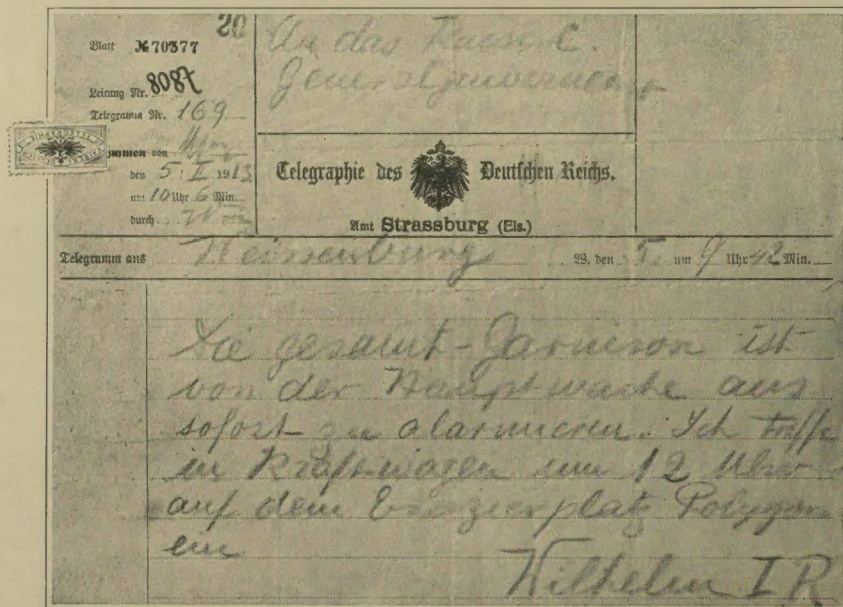 20
Blatt № 70377
Leitung Nr. 8087
Telegramm Nr. 169
von
den 5. II 1913
um 10 Uhr 6 Min.
durch
An das Kaiserl.
Generalgouvernement
Telegraphie des Deutschen Reichs.
Amt Strassburg (Els.)
Telegramm aus Weissenburg W. den 5. um 9 Uhr 42 Min.
Die gesamt-Garnison ist
von der Hauptwache aus
sofort zu alarmieren. Ich treffe
in Kraftwagen um 12 Uhr
auf dem Exerzierplatz Polygon
ein
Wilhelm I R